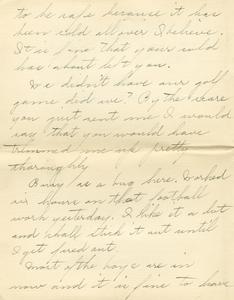 to be safe because it has
been cold all over I believe.
It is fine that your cold
has about left you.
We didn't have our golf
game did we? By the score
you just sent me I would
say that you would have
trimmed me up pretty
thoroughly
Busy as a bug here. Worked
six hours on that football
work yesterday. I like it a lot
and shall stick it out until
I get fired out.
Most of the boys are in
now and it is fine to have